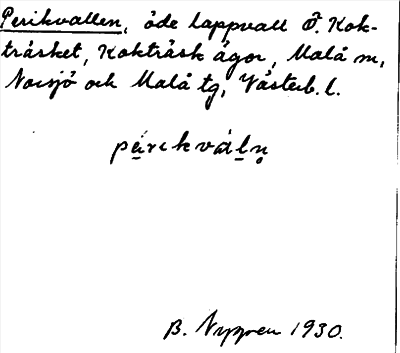 Perikvallen, öde lappvall Ö. Kok-
träsket, Kokträsk ägor, Malå m,
Norsjö och Malå tg, Västerb. l.
pärikváln̥
B. Nygren 1930.